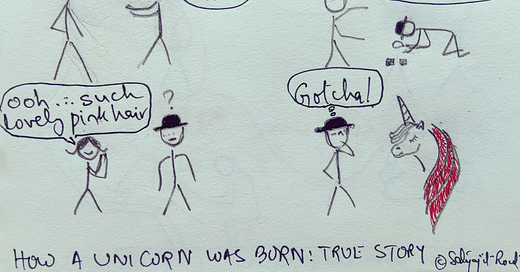 ooh... such
lovely pink hair
?
Gotcha!
HOW A UNICORN WAS BORN: TRUE STORY ©